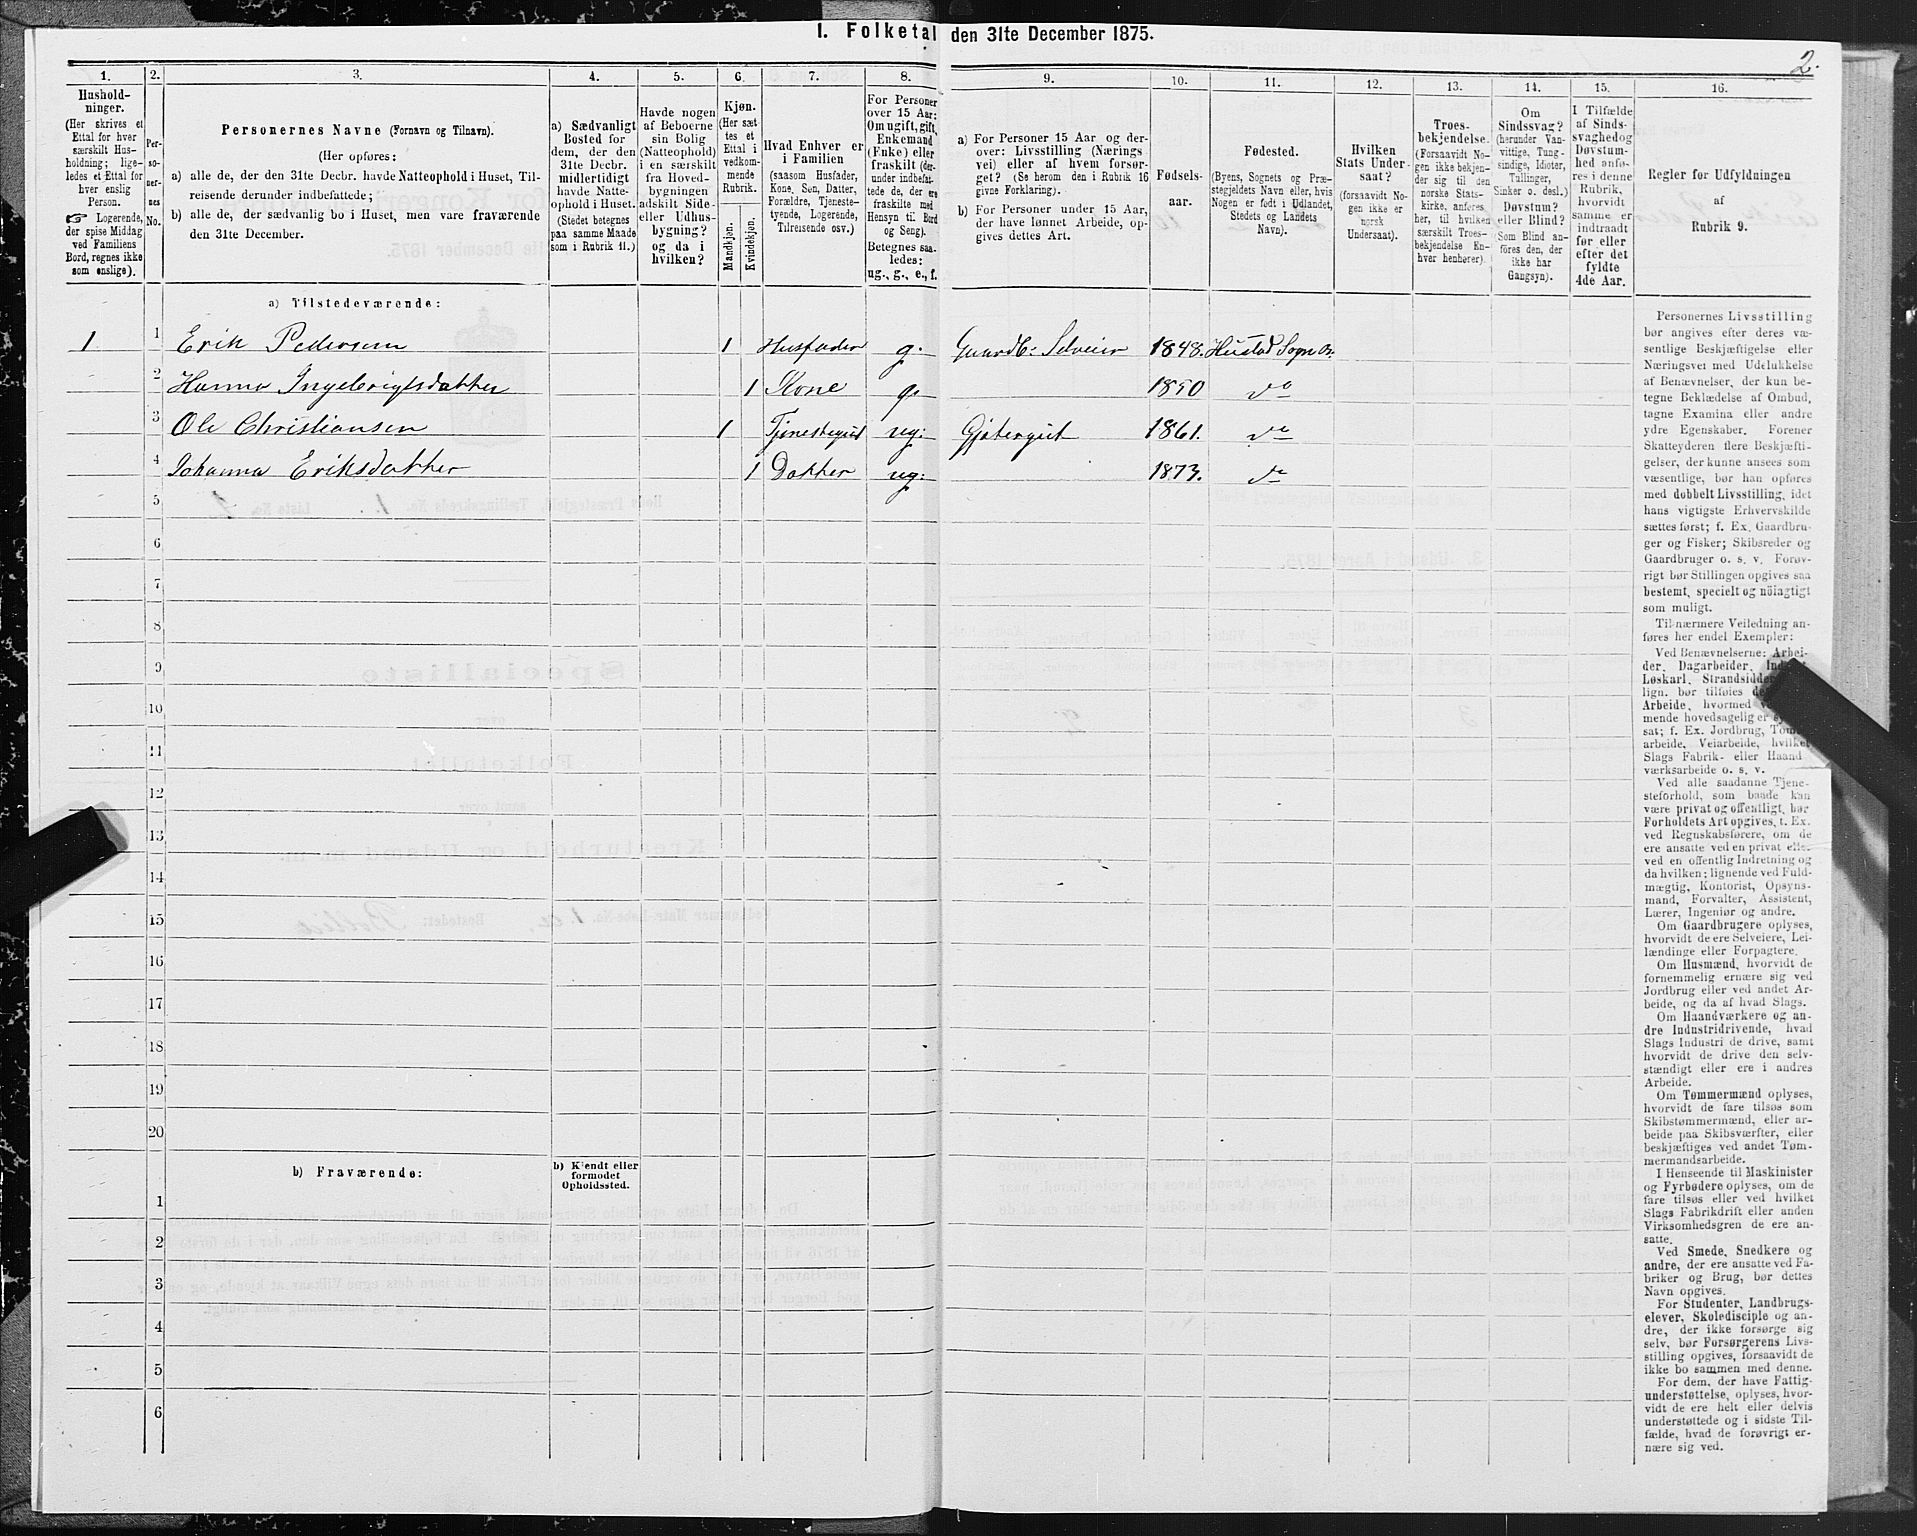 I. Folketal den 31te December 1875.
2.
1. 2. 3. 4. 5. 6. 7. 8. 9. 10. 11. 12. 13. 14. 15. 16.
Hushold-
ninger.
(Her skrives et
Ettal for hver
særskilt Hus-
holdning; lige-
ledes et Ettal for
hver enslig
Person.
☞ Logerende,
der spise Middag
ved Familiens
Bord, regnes ikke
som enslige).
Per-
so-
ner-
nes
No.
Personernes Navne (Fornavn og Tilnavn).
(Her opføres:
a) alle de, der den 31te Decbr. havde Natteophold i Huset, Til-
reisende derunder indbefattede;
b) alle de, der sædvanlig bo i Huset, men vare fraværende
den 31te December.
a) Sædvanligt
Bosted for
dem, der den
31te Decbr.
midlertidigt
havde Natte-
ophold i Huset.
(Stedet betegnes
paa samme Maade
som i Rubrik 11.)
Havde nogen
af Beboerne
sin Bolig
(Natteophold)
i en særskilt
fra Hoved-
bygningen
adskilt Side-
eller Udhus-
bygning?
og da i
hvilken?
Kjøn.
(Her sæt-
tes et
Ettal i
vedkom-
mende
Rubrik.
Mandkjøn.
Kvindekjøn.
Hvad Enhver er
i Familien
(saasom Husfader,
Kone, Søn, Datter,
Forældre, Tjeneste-
tyende, Logerende,
Tilreisende osv.)
For Personer
over 15 Aar:
Om ugift, gift,
Enkemand
(Enke) eller
fraskilt (der-
under indbefat-
tede de, der ere
fraskilte med
Hensyn til Bord
og Seng).
Betegnes saa-
ledes:
ug., g., e., f.
a) For Personer 15 Aar og der-
over: Livsstilling (Nærings-
vei) eller af hvem forsør-
get? (Se herom den i Rubrik 16
givne Forklaring).
b) For Personer under 15 Aar,
der have lønnet Arbeide, op-
gives dettes Art.
Fødsels-
aar.
Fødested.
(Byens, Sognets og Præ-
stegjeldets Navn eller, hvis
Nogen er født i Udlandet,
Stedets og Landets
Navn).
Hvilken
Stats Under-
saat?
(forsaavidt No-
gen ikke er
norsk
Undersaat).
Troes-
bekjendelse.
(Forsaavidt No-
gen ikke bekjen-
der sig til den
norske Stats-
kirke, anføres
her, til hvilken
særskilt Troes-
bekjendelse En-
hver henhører).
Om
Sindssvag?
(herunder Van-
vittige, Tung-
sindige, Idioter,
Tullinger,
Sinker o. desl.)
Døvstum?
eller Blind?
Som Blind an-
føres den, der
ikke har
Gangsyn).
I Tilfælde
af Sinds-
svaghed og
Døvstum-
hed anfø-
res i denne
Rubrik,
hvorvidt
samme er
indtraadt
før eller
efter det
fyldte
4de Aar.
Regler for Udfyldningen
af
Rubrik 9.
a) Tilstedeværende:
1 1 Erik Pedersen 1 Husfader g. Gaardb: Selveier 1848. Hustad Sogn
2 Hanna Ingebrigtsdatter 1 Kone g. 1850 do
3 Ole Christiansen 1 Tjenestegut ug: Gjætergut 1861. do
4 Johanna Eriksdatter 1 Datter ug: 1873. do
5
6
7
8
9
10
11
12
13
14
15
16
17
18
19
20
b) Fraværende:
b) Kjendt eller
formodet
Opholdssted.
1
2
3
4
5
6
Personernes Livsstilling
bør angives efter deres væ-
sentlige Beskjæftigelse eller
Næringsvei med Udelukkelse
af Benævnelser, der kun be-
tegne Beklædelse af Ombud,
tagne Examina eller andre
ydre Egenskaber. Forener
Skatteyderen flere Beskjæfti-
gelser, der kunne ansees som
væsentlige, bør han opføres
med dobbelt Livsstilling, idet
hans vigtigste Erhvervskilde
sættes først; f. Ex. Gaardbru-
ger og Fisker; Skibsreder og
Gaardbruger o. s. v. Forøv-
rigt bør Stillingen opgives saa
bestemt, specielt og nöiagtigt
som muligt.
Til nærmere Veiledning an-
føres her endel Exempler:
Ved Benævnelserne: Arbei-
der, Dagarbeider,
Løskarl, Strandsidder
lign. bør tilføies
Arbeide, hvormed
mende hovedsagelig er
sat; f. Ex. Jordbrug,
arbeide, Veiarbeide, hvilket
Slags Fabrik- eller Haand-
værksarbeide o. s. v.
Ved alle saadanne Tjene-
steforhold, som baade kan
være privat og offentligt, bør
Forholdets Art opgives, t. Ex.
ved Regnskabsførere, om de
ere ansatte ved en privat eller
ved en offentlig Indretning og
da hvilken; lignende ved Fuld-
mægtig, Kontorist, Opsyns-
mand, Forvalter, Assistent,
Lærer, Ingeniør og andre.
Om Gaardbrugere oplyses,
hvorvidt de ere Selveiere, Lei-
lændinge eller Forpagtere.
Om Husmænd, hvorvidt de
fornemmelig ernære sig ved
Jordbrug eller ved andet Ar-
beide, og da af hvad Slags.
Om Haandværkere og an-
dre Industridrivende, hvad
Slags Industri de drive, samt
hvorvidt de drive den selv-
stændigt eller ere i andres
Arbeide.
Om Tømmermænd oplyses,
hvorvidt de fare tilsøs som
Skibstømmermænd, eller ar-
beide paa Skibsværfter, eller
beskjæftiges ved andet Tøm-
mermandsarbeide.
I Henseende til Maskinister
og Fyrbødere oplyses, om de
fare tilsøs eller ved hvilket
Slags Fabrikdrift eller anden
Virksomhedsgren de ere an-
satte.
Ved Smede, Snedkere og
andre, der ere ansatte ved Fa-
briker og Brug, bør dettes
Navn opgives.
For Studenter, Landbrugs-
elever, Skoledisciple og an-
dre, der ikke forsørge sig
selv, bør Forsørgerens Livs-
stilling opgives, forsaavidt de
ikke bo sammen med denne.
For dem, der have Fattig-
understøttelse, oplyses, hvor-
vidt de ere helt eller delvis
understøttede og i sidste Til-
fælde, hvad de forøvrigt er-
nære sig ved.